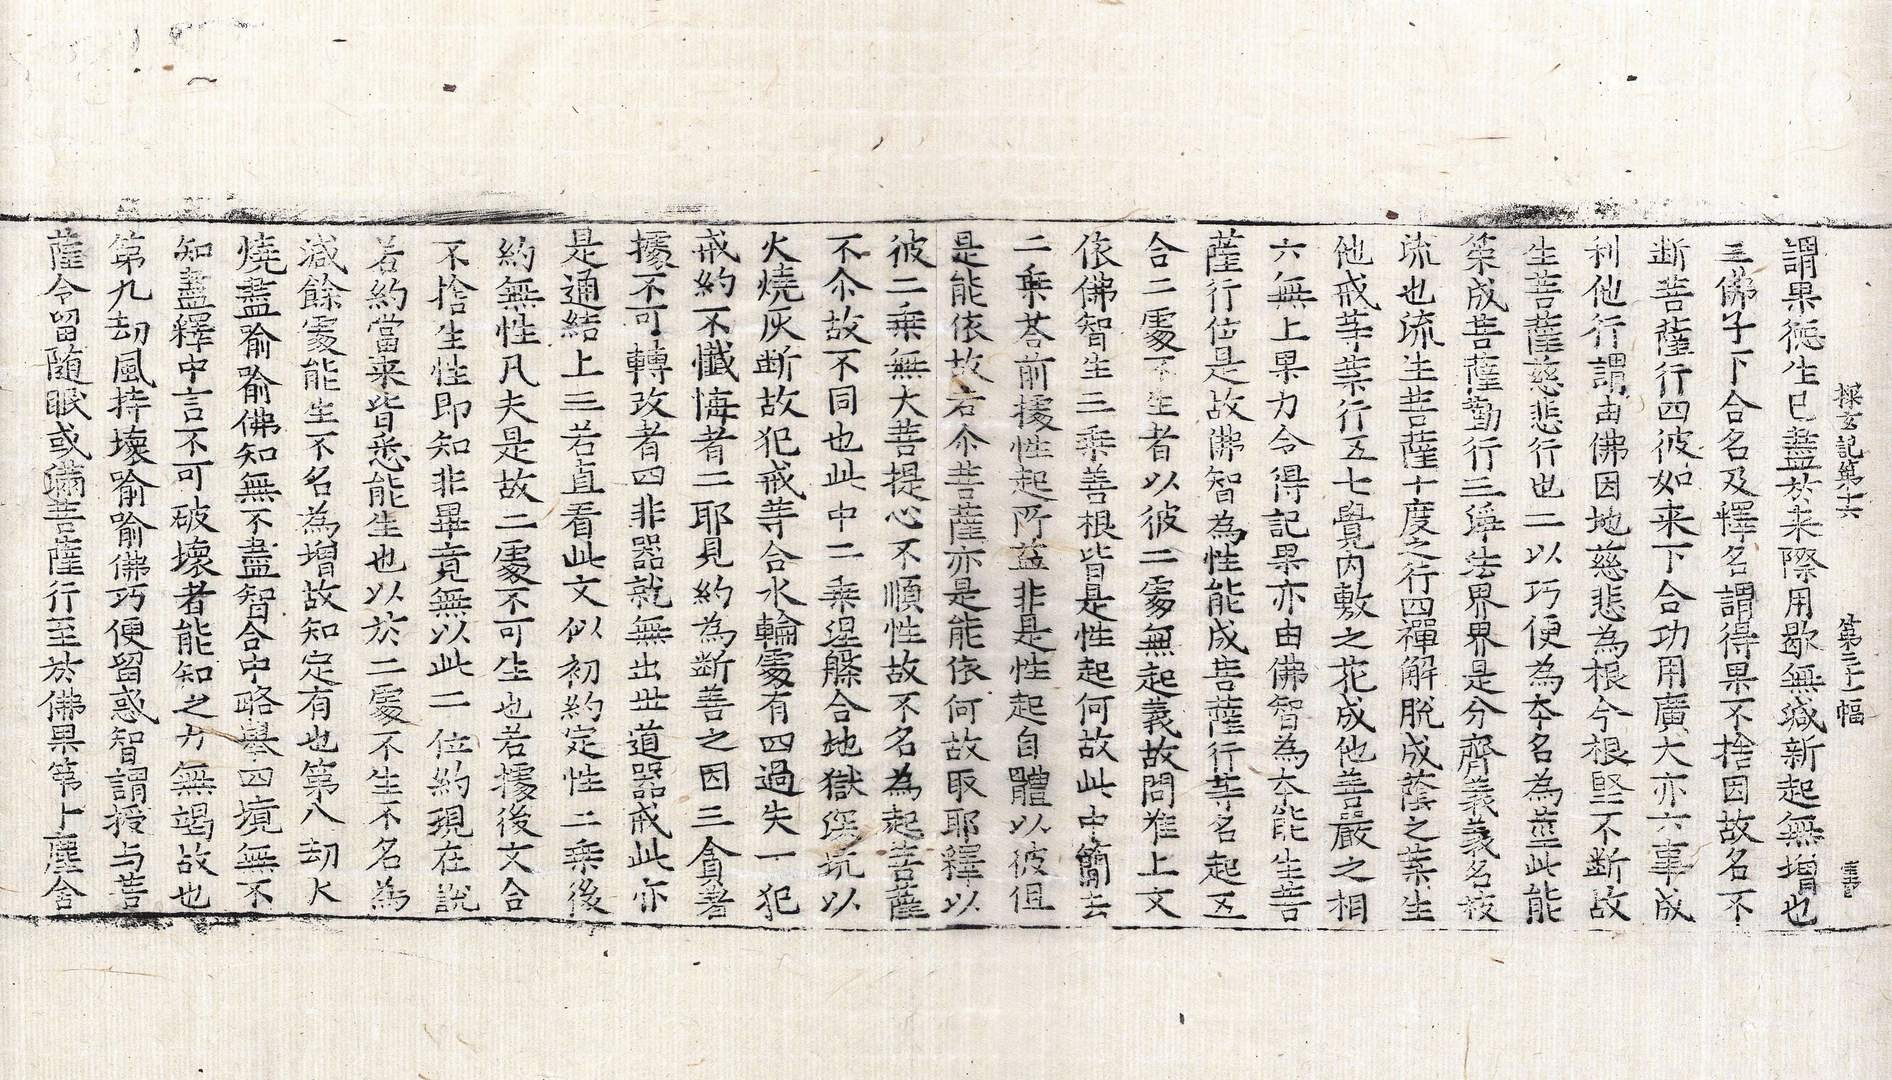 探玄記第十六 第二十一幅
謂果德生已盡於未來際用歇無減新起無增也
三佛子下合名及釋名謂得果不捨因故名不
断菩薩行四彼如来下合功用廣大亦六事成
利他行謂由佛因地慈悲為根今根堅不断故
生菩薩慈悲行也二以巧便為夲名為莖此能
策成菩薩勤行三淨法界界是分齊義義名枝
流也流生菩薩十度之行四禪解脱成蔭之葉生
他戒䓁葉行五七覺内敷之花成他善嚴之相
六無上果力令得記果亦由佛智為夲能生菩
薩行位是故佛智為性能成菩薩行䓁名起五
合二䖏不生者以彼二䖏無起義故問准上文
依佛智生三乗善根皆是性起何故此中簡去
二乗荅前據性起所益非是性起自體以彼但
是能依故若尒菩薩亦是能依何故取耶釋以
彼二乗無大菩提心不順性故不名為起菩薩
不尒故不同也此中二乗涅槃合地獄深坑以
火燒灰断故犯戒等合水輪䖏有四過失一犯
戒約不懺悔者二耶見約為断善之因三貪著
據不可轉改者四非器就無出世道器戒此亦
是通結上三若直看此文似初約定性二乗後
約無性凡夫是故二䖏不可生也若據後文合
不捨生性即知非畢竟無以此二位約現在說
若約當来皆悉能生也以於二䖏不生不名為
減餘䖏能生不名為增故知定有也第八劫火
燒盡喻喻佛知無不盡智合中略舉四境無不
知盡釋中言不可破壞者能知之力無竭故也
第九劫風持壞喻喻佛巧便留惑智謂授与菩
薩令留随眠或滿菩薩行至於佛果第十塵含